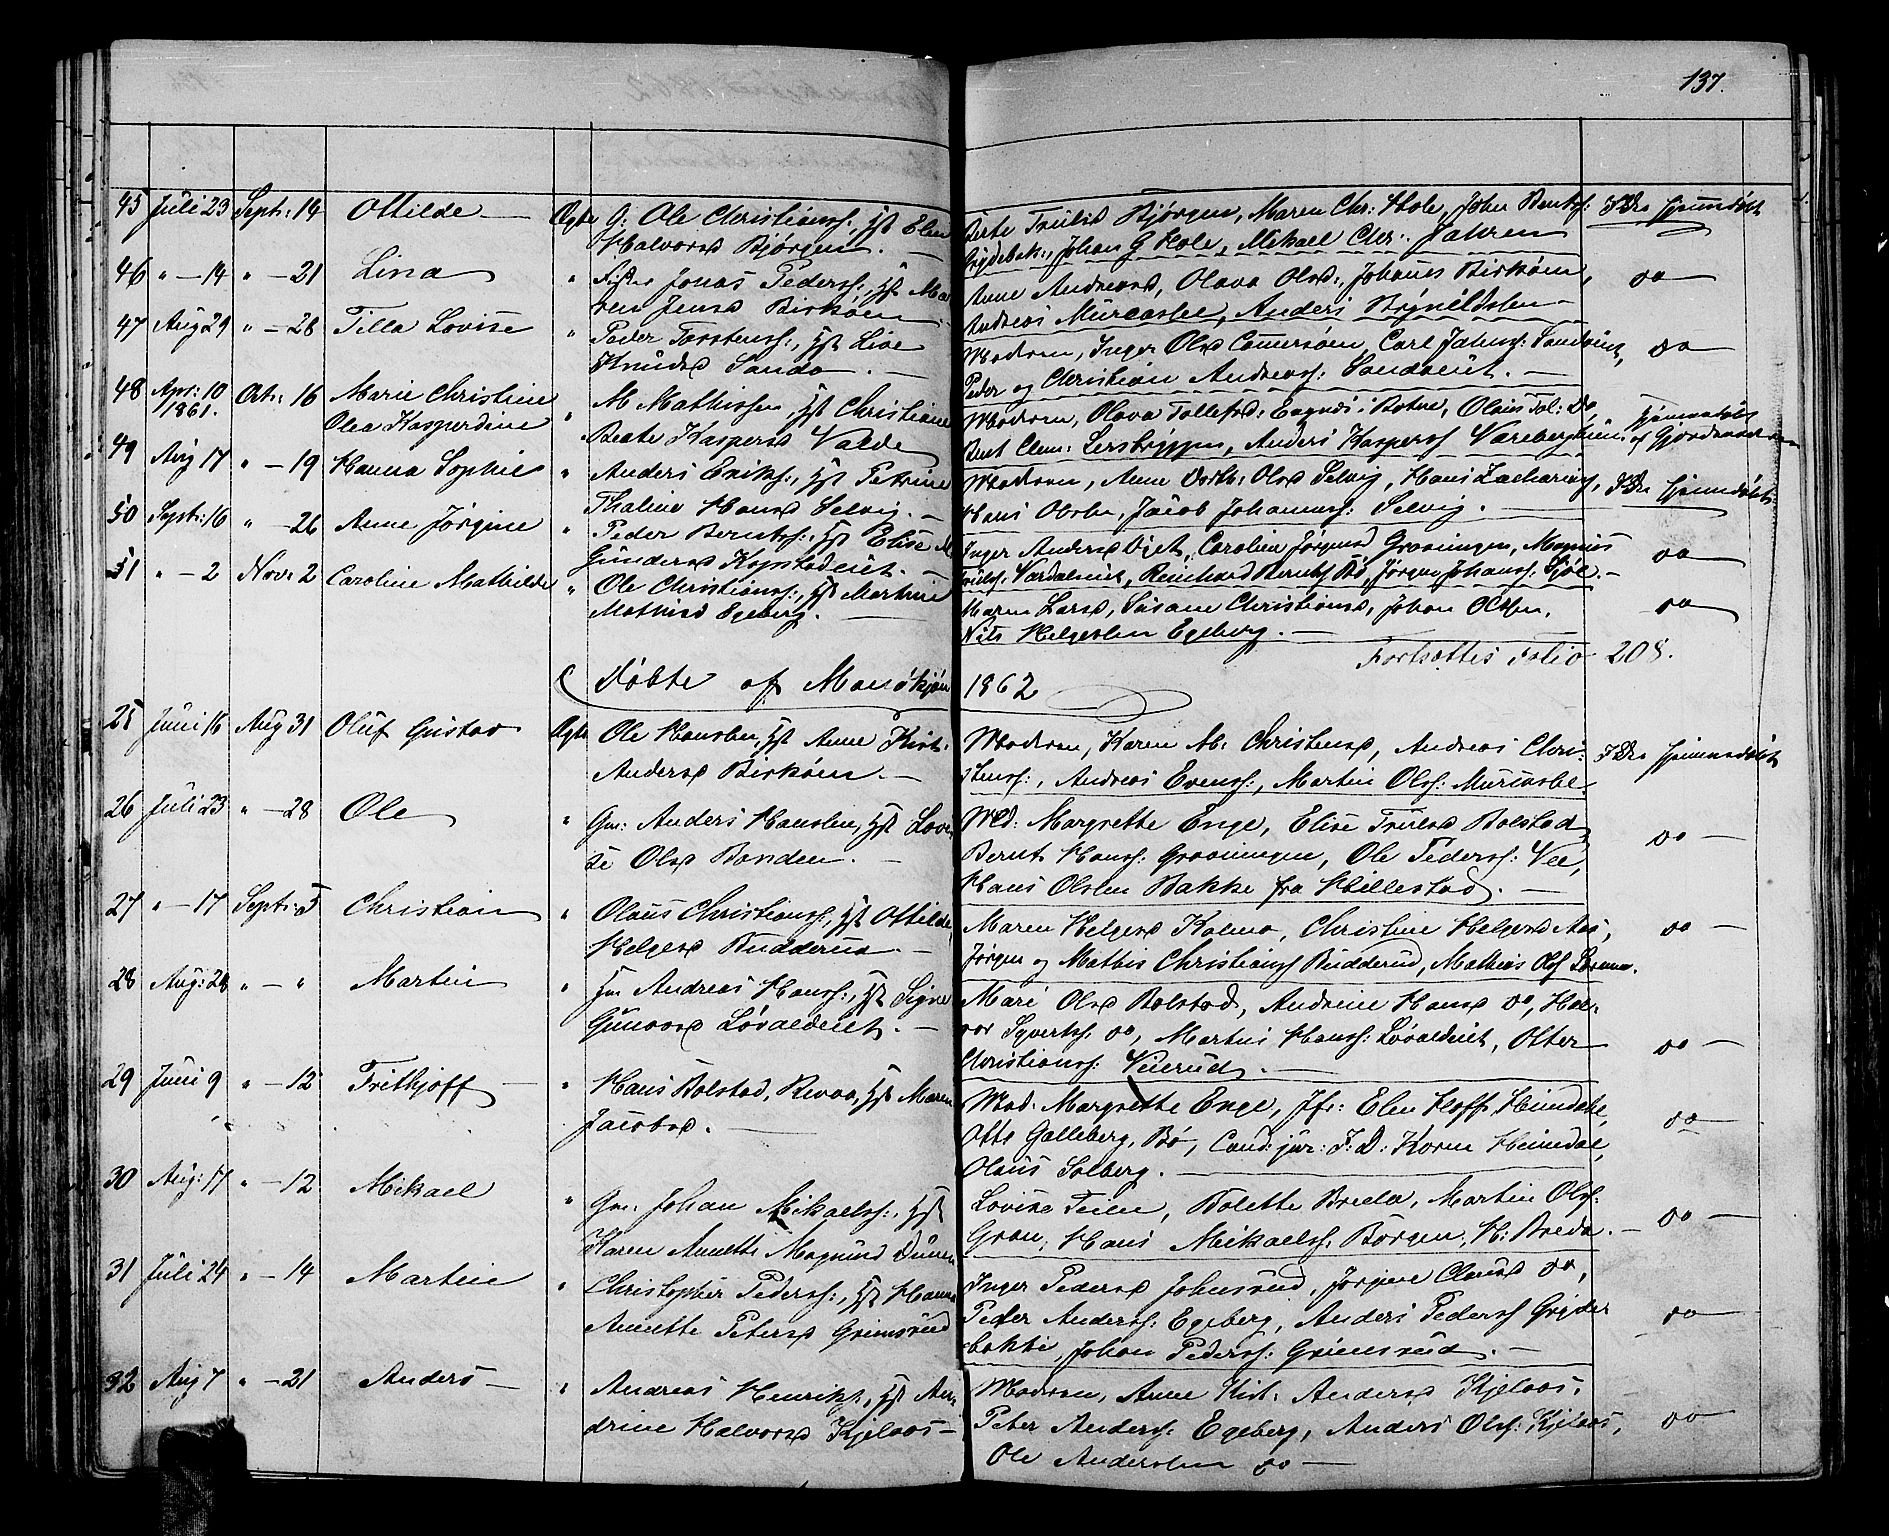 137.
45 Juli 23 Septr: 14 Ottilde Ægte G: Ole Christianss: Hst Elen
Halvorsd Bjørgen.
Berte Trulsd Bjørgen, Maren Chr: Hole, Johan Berntss:
Grydebak: Johan G Hole, Mikael Chr: Jahren
J.Dr. Hjemmedøbt
46 " 14 " 21 Lina " Jonas Pederss:, Hst Ma-
ren Jensd Birkøen
Anne Andreasd, Olava Olsd, Johanes Birkøen,
Andreas Murcassee, Anders Brynildsen
do
47 Aug 29 " 28 Tilla Lovise " Peder Torstenss:, Hst Live
Knudsd Sando.
Modren, Inger Olsd, Carl Johnss: Sandviet,
Peder og Christian Andreass: Sandviet.
do
48 Apr: 10 1861. Octr: 16 Marie Christine
Olea Kasperdine
" M Mathissen, Hst Christiane
Beate Kaspersd Valde
Modren, Olava Tollefsd, Olaus Tol: Do,
Bent Clem: Lersbryggen, Anders Kaspers Vareberg
Hjemmedøbt
af Gjordemoderen
49 Aug 17 " 19 Hanna Sophie " Anders Eriks:, Hst Petrine
Thaline Hansd Selvig.
Modren, Anne Dorth: Olsd Selvig, Hans Zacharias,
Hans Olsen, Jacob Johanness: Selvig.
J.Dr. Hjemmedøbt
50 Septr: 16 " 26 Anne Jørgine " Peder Berntss:, Hst Elise M
Gundersd Kopstadeiet.
Inger Andersd Viet, Caroline Jørgensd Grooningen, Magnus
Trulss: Vardalneiet, Reinhard Bernts Bø, Jørgen Johanss: Sjøl.
do
51 " 2 Novr 2 Caroline Mathilde " Ole Christianss:, Hst Martine
Mathisd Egeberg.
Maren Larsd, Susane Christiansd, Johan Olsen,
Nils Helgesen Egeberg.
do
Fortsættes Folio 208.
Døbte af Mandkjøn 1862
25 Juni 16 Aug 31 Oluf Gustav Ægte Ole Hansen, Hst Anne Kirst:
Andersd Birkøen.
Modren, Karen M: Christensd, Andreas Chri-
stenss:, Andreas Evenss:, Martin Olss: Murcasbe
J.Dr. Hjemmedøbt
26 Juli 23 " 28 Ole " Gm: Anders Hansen, Hst Lovi-
se Olsd Bonden.
Md: Margrette Enge, Elise Trulsd Bolstad,
Bernt Hanss: Grooningen, Ole Pederss: Vee,
Hans Olsen Bakke fra Hillestad.
do
27 " 17 Septr: 5 Christian " Olaus Christianss, Hst Ottilde
Helgesd Budderud.
Maren Helgesd Holmo, Christine Helgesd Aas,
Jørgen og Mathis Christianss Budderud, Mathias Olss
do
28 Aug: 28 " " Martin " Gm Andreas Hanss:, Hst Signe
Gunorsd Løvaldeiet.
Mari Olsd Bolstad, Andrine Hansd do, Hal-
vor Syvertss: do, Martin Hanss: Løvaldeiet, Otter
Christianss: Veierud.
do
29 Juni 9 " 12 Frithjoff " Hans Bolstad, Revaa, Hst Maren
Jacobsd.
Mad: Margrette Enge, Jfr: Elen Hoff, Heimdahl,
Otto Galleberg, Bø, Cand: jur: F: D: Koren Heimdal,
Olaus Solberg.
do
30 Aug: 17 " 12 Mikael " Gm: Johan Mikaelss:, Hst
Karen Annette Magnusd
Lovise Teien, Bolette Breda, Martin Olss:
Gran, Hans Mikaelss: Børgen, H: Breda.
do
31 Juli 24 " 14 Martin " Christopher Pederss:, Hst Hanna
Annette Petersd Grimsrud
Inger Pedersd Johnsrud, Jørgine Clausd do,
Peder Anderss: Egeberg, Anders Pederss Gryde-
bakke, Johan Pederss: Grimsrud.
do
32 Aug 7 " 21 Anders " Andreas Henriks:, Hst An-
drine Halvorsd Kjelaas
Modren, Anne Kirst: Andersd Kjelaas,
Peter Anderss: Egeberg, Anders Olss: Kjelaas,
Ole Andersen do
do